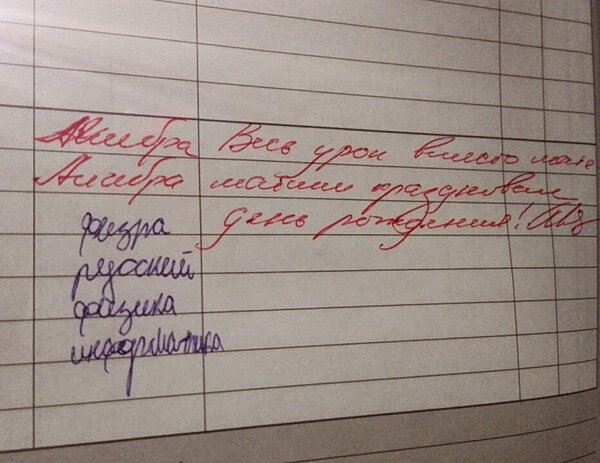 Алгебра Весь урок вместо мате
Алгебра матики праздновал
физра день рождения!
русский
физика
информатика